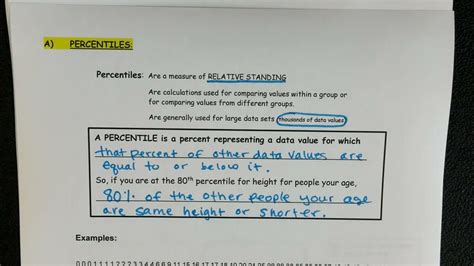 A) PERCENTILES:
Percentiles: Are a measure of RELATIVE STANDING
Are calculations used for comparing values within a group or
for comparing values from different groups.
Are generally used for large data sets (thousands of data values)
A PERCENTILE is a percent representing a data value for which
that percent of other data values are
equal to or below it.
So, if you are at the 80th percentile for height for people your age,
80% of the other people your age
are same height or shorter.
Examples: